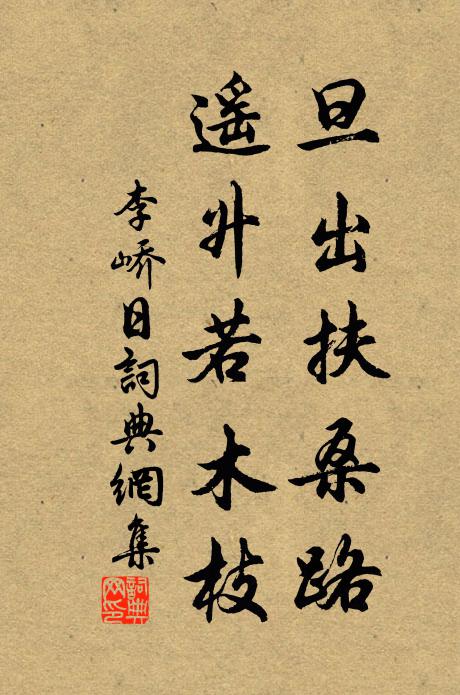 旦出扶桑路
遥升若木枝
李嶠日詞典網集
詞典網印